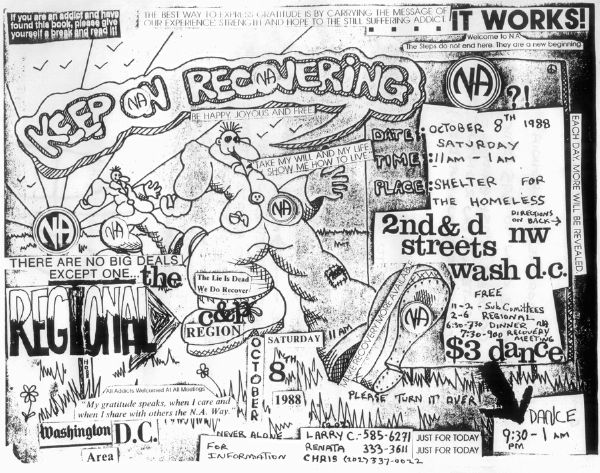 If you are an addict and have
found this book, please give
yourself a break and read it!
THE BEST WAY TO EXPRESS GRATITUDE IS BY CARRYING THE MESSAGE OF
OUR EXPERIENCE, STRENGTH AND HOPE TO THE STILL SUFFERING ADDICT.
IT WORKS!
Welcome to N.A.
The Steps do not end here. They are a new beginning.
KEEP ON RECOVERING
NA
NA
BE HAPPY, JOYOUS AND FREE
NA
?!
TAKE MY WILL AND MY LIFE.
SHOW ME HOW TO LIVE.
DATE: OCTOBER 8TH 1988
SATURDAY
TIME: 11AM - 1AM
PLACE: SHELTER FOR
THE HOMELESS
DIRECTIONS
ON BACK
2nd & d nw
streets
wash d.c.
EACH DAY, MORE WILL BE REVEALED.
FREE
11-2 - Sub Comittees
2-6 REGIONAL
6:30-7:30 DINNER NA
7:30-900 RECOVERY
MEETING
$3 dance
NA
NA
NA
NA
THERE ARE NO BIG DEALS,
EXCEPT ONE... the
REGIONAL
The Lie Is Dead
We Do Recover
c&p
REGION
11AM
SATURDAY
OCTOBER
8th
1988
NA
PLEASE TURN IT OVER
All Addicts Welcomed At All Meetings
"My gratitude speaks, when I care and
when I share with others the N.A. Way."
Washington D.C.
Area
NEVER ALONE
FOR
INFORMATION
LARRY C.- 585-6271
RENATA 333-3611
CHRIS (202)337-0022
JUST FOR TODAY
JUST FOR TODAY
DANCE
9:30 - 1 AM
PM